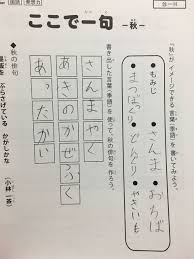 国語
発想力
ここで一句
-秋-
「秋」がイメージできる言葉(季語)を書いてみよう。
もみじ
さんま
おちば
まつぼっくり
どんぐり
やきいも
書き出した言葉(季語)を使って、秋の俳句を作ろう。
さんまやく
あきのかぜふく
あったかい
秋の俳句
ぶらさげている
かがしかな
(小林一茶)